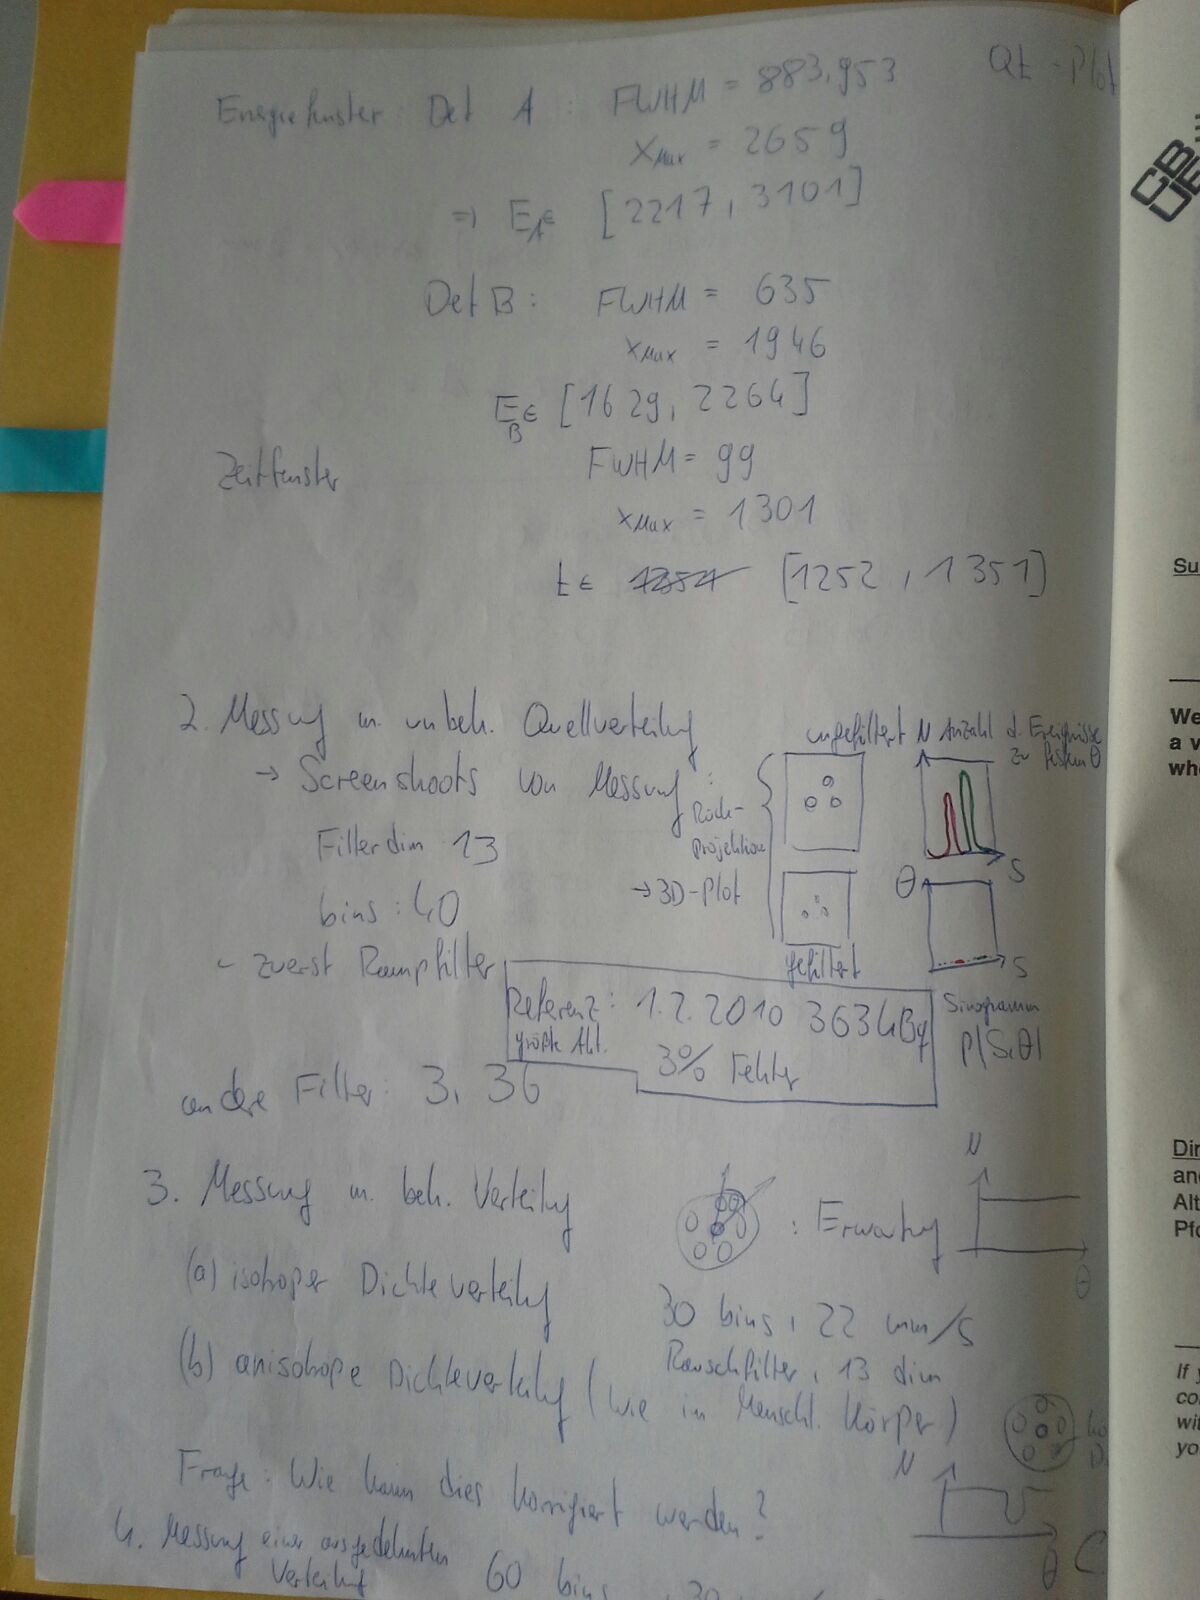 Qt-Plot
Energiefenster: Det A: FWHM = 883,953
xMax = 2659
=> EA∈ [2217, 3101]
Det B: FWHM = 635
xMax = 1946
EB∈ [1629, 2264]
Zeitfenster FWHM = 99
xMax = 1301
t∈ [1252, 1351]
2. Messung m. unbek. Quellverteilung
→ Screenshoots von Messung:
Filterdim 13
bins: 40
- zuerst Rampfilter
ungefiltert
Rück-
projektion
→ 3D-Plot
gefiltert
N Anzahl d. Ereignisse
zu festem θ
S
θ
S
Sinogramm
p(S,θ)
Referenz: 1.2.2010 363 kBq
größte Akt. 3% Fehler
andere Filter: 3, 36
3. Messung m. bek. Verteilung
: Erwartung
N
θ
(a) isotroper Dichteverteilung
30 bins, 22 mm/s
Rauschfilter, 13 dim
(b) anisotrope Dichteverteilung (wie im Menschl. Körper)
N
θ
Frage: Wie kann dies korrigiert werden?
4. Messung einer ausgedehnten
Verteilung
60 bins
Su
We
a v
whe
Dir
and
Alt
Pfo
If y
co
wit
yo